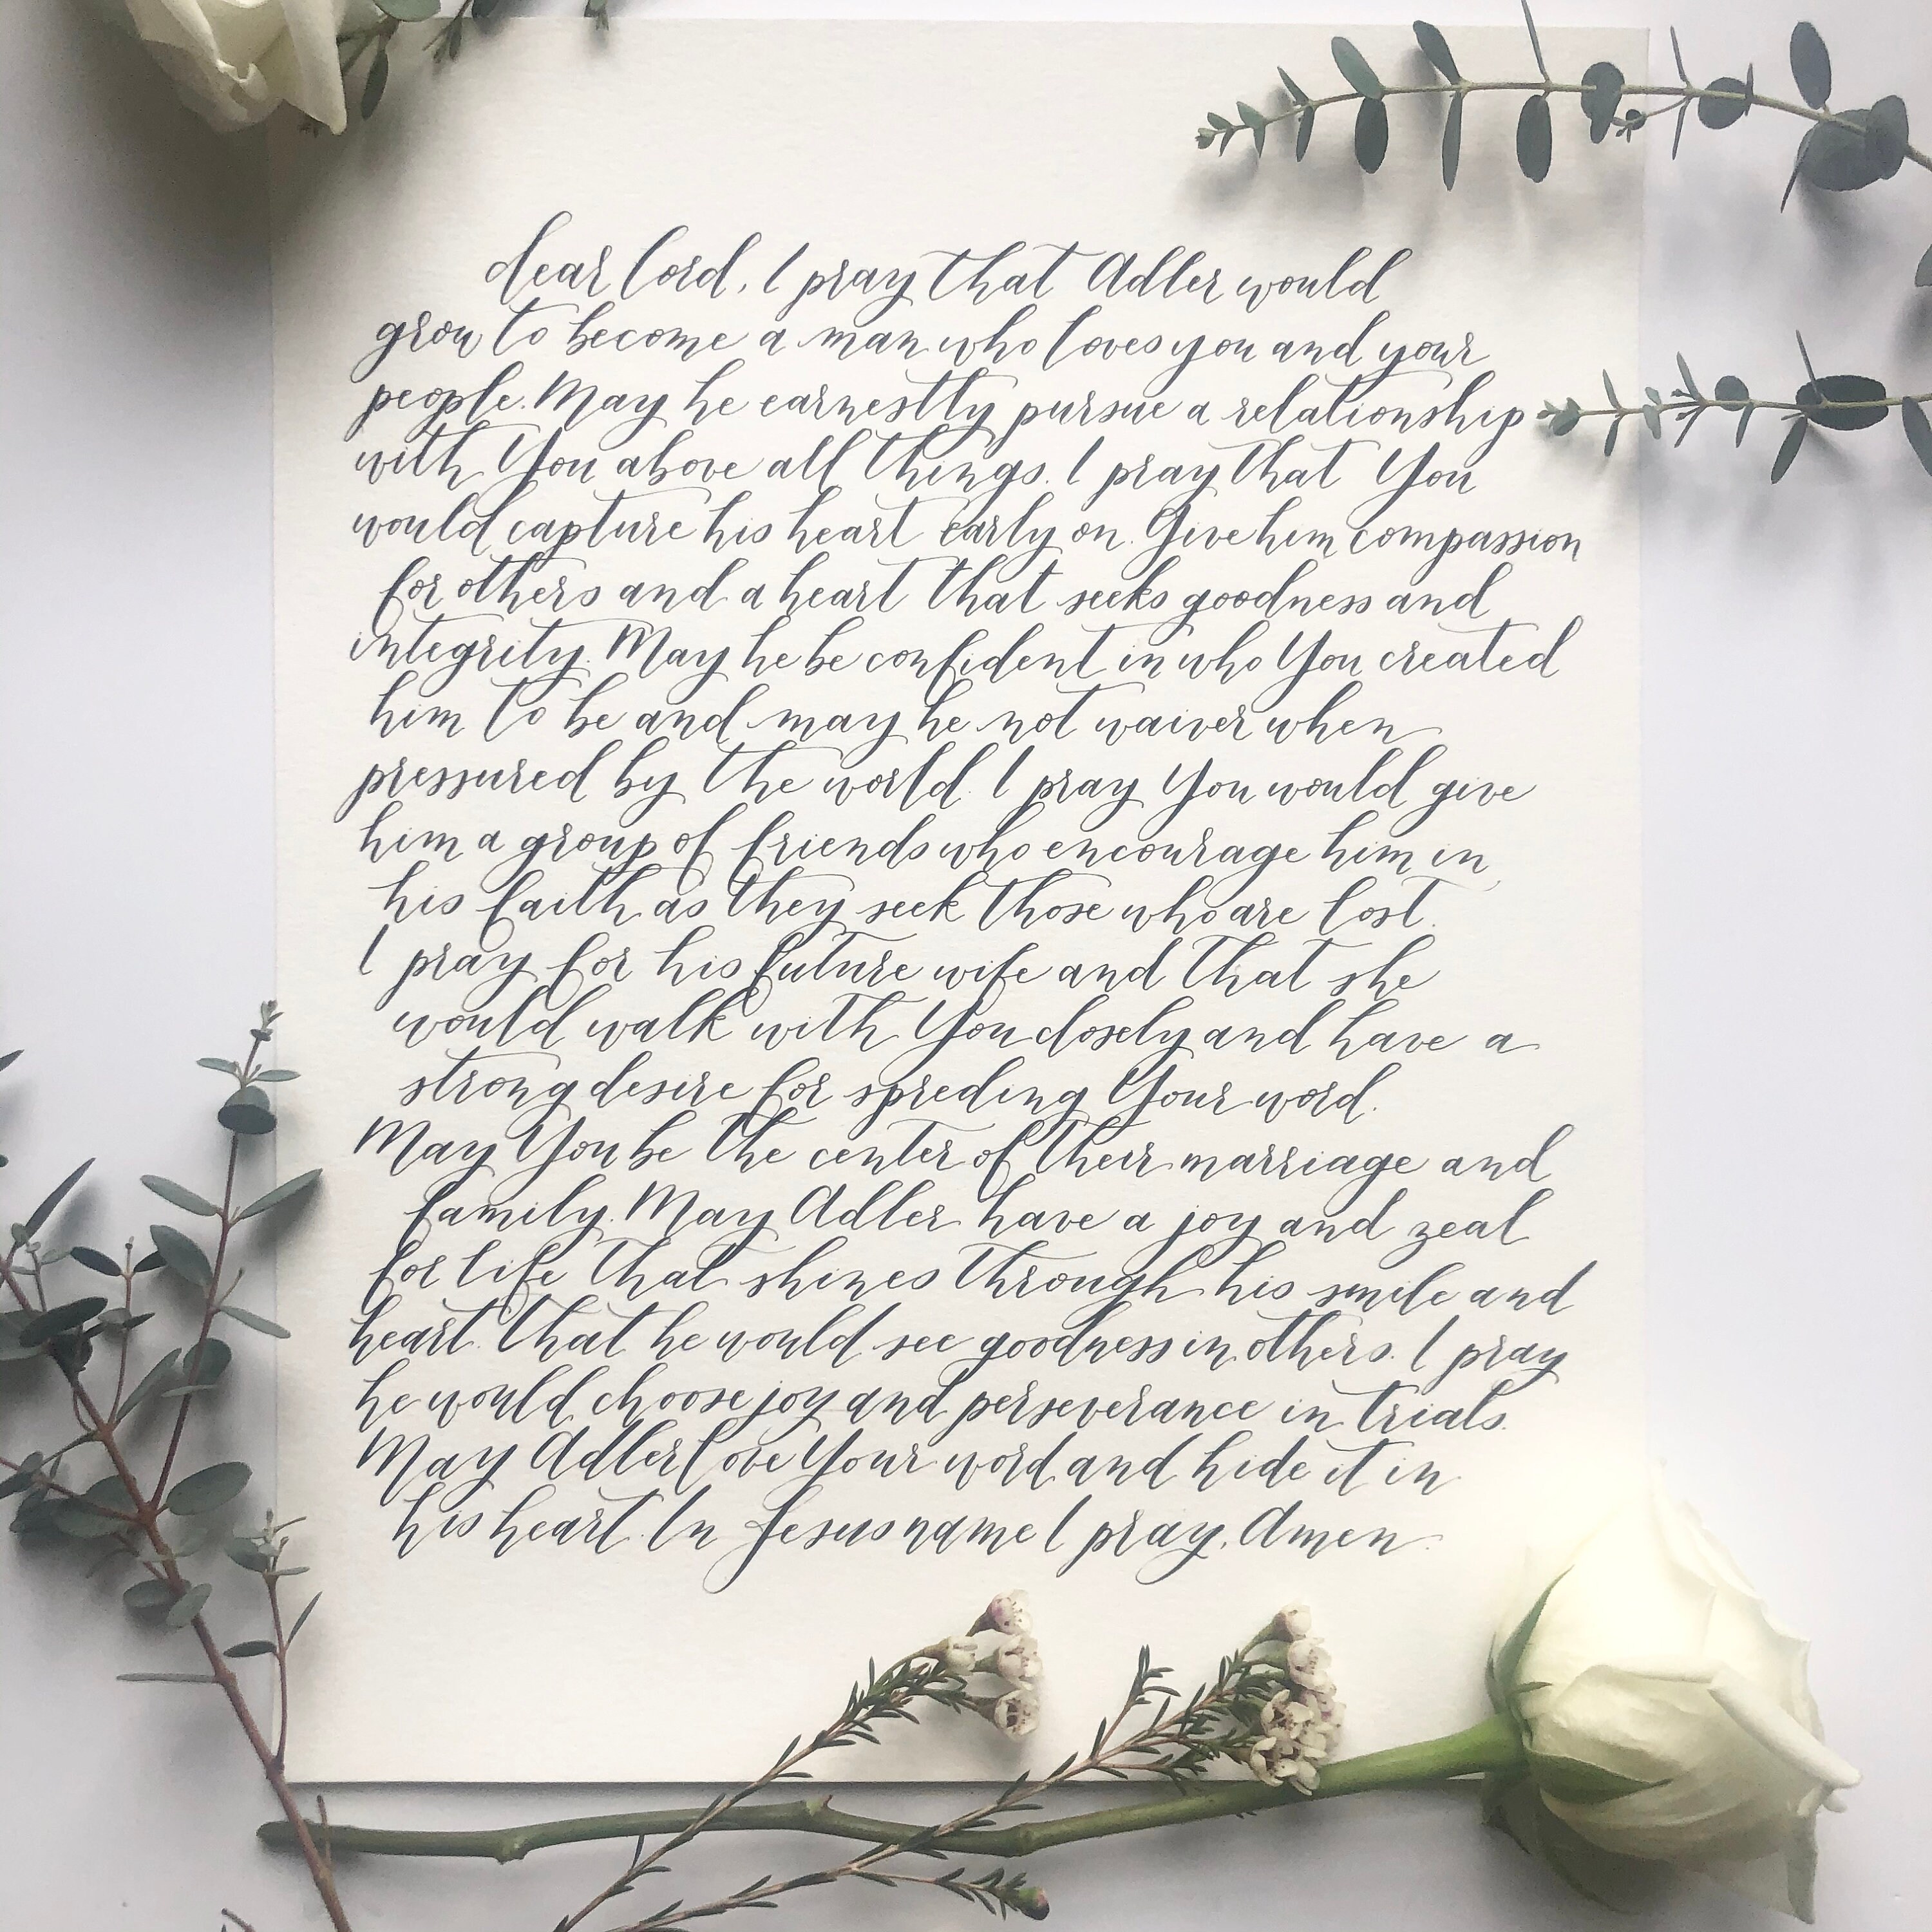 dear Lord, I pray that Adler would
grow to become a man who loves you and your
people. May he earnestly pursue a relationship
with You above all things. I pray that You
would capture his heart early on. Give him compassion
for others and a heart that seeks goodness and
integrity. May he be confident in who You created
him to be and may he not waiver when
pressured by the world. I pray You would give
him a group of friends who encourage him in
his faith as they seek those who are lost.
I pray for his future wife and that she
would walk with You closely and have a
strong desire for spreding Your word.
May You be the center of their marriage and
family. May Adler have a joy and zeal
for life that shines through his smile and
heart. That he would see goodness in others. I pray
he would choose joy and perseverance in trials.
May Adler love Your word and hide it in
his heart. In Jesus name I pray, Amen.